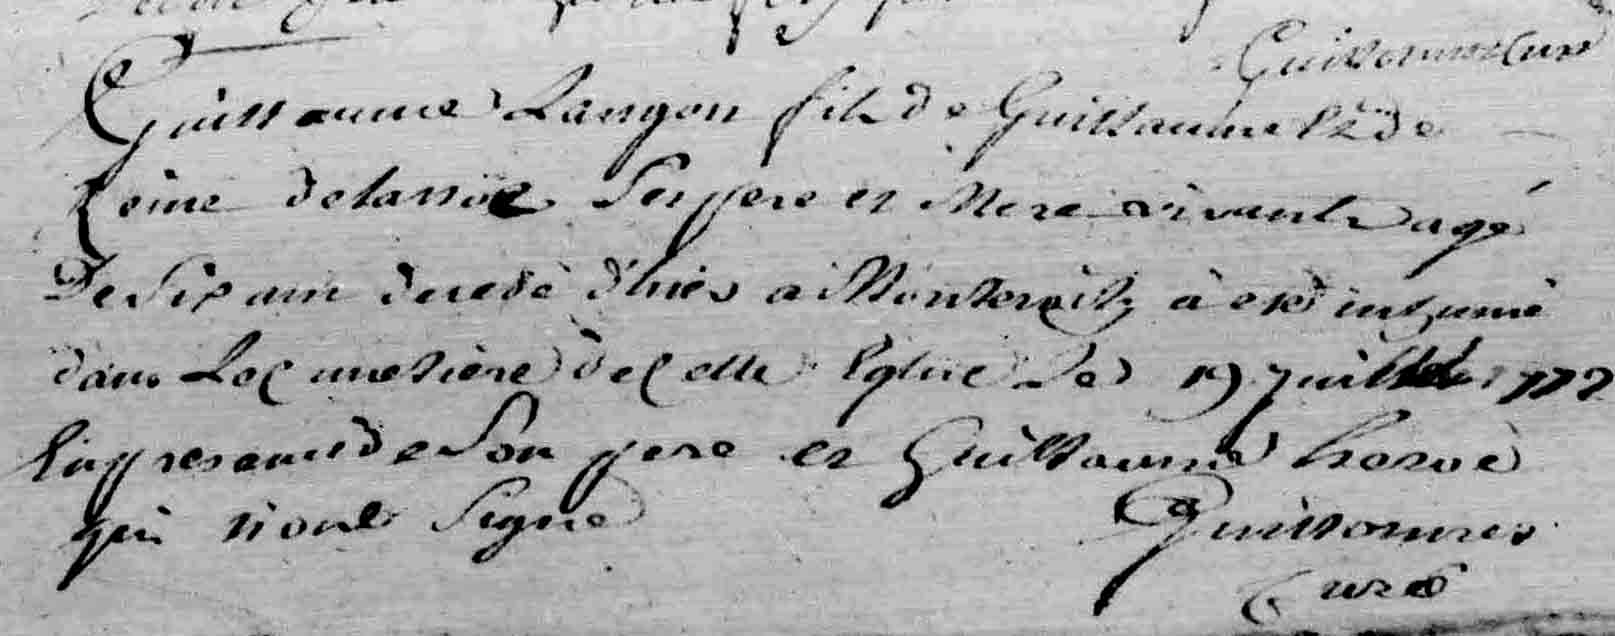 Guillaume Langon fils de Guillaume & de
Reine delanoë Ses pere et Mere vivants agé
De Six ans decedé d'hier a à eté inhumé
dans Le Cimetiere de Cette Eglise Le 19 juillet 1772
En presence de Son pere et Guillaume hervé
qui n'ont Signé
Guillonnres
Curé